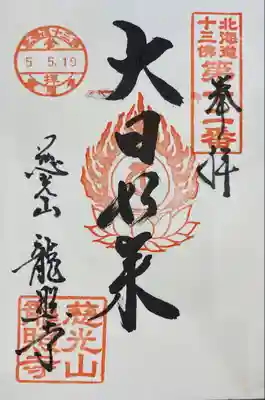 北海道
十三佛第十二番
奉拝
大日如来
慈光山 龍照寺
5 5.19
慈光山
龍照寺